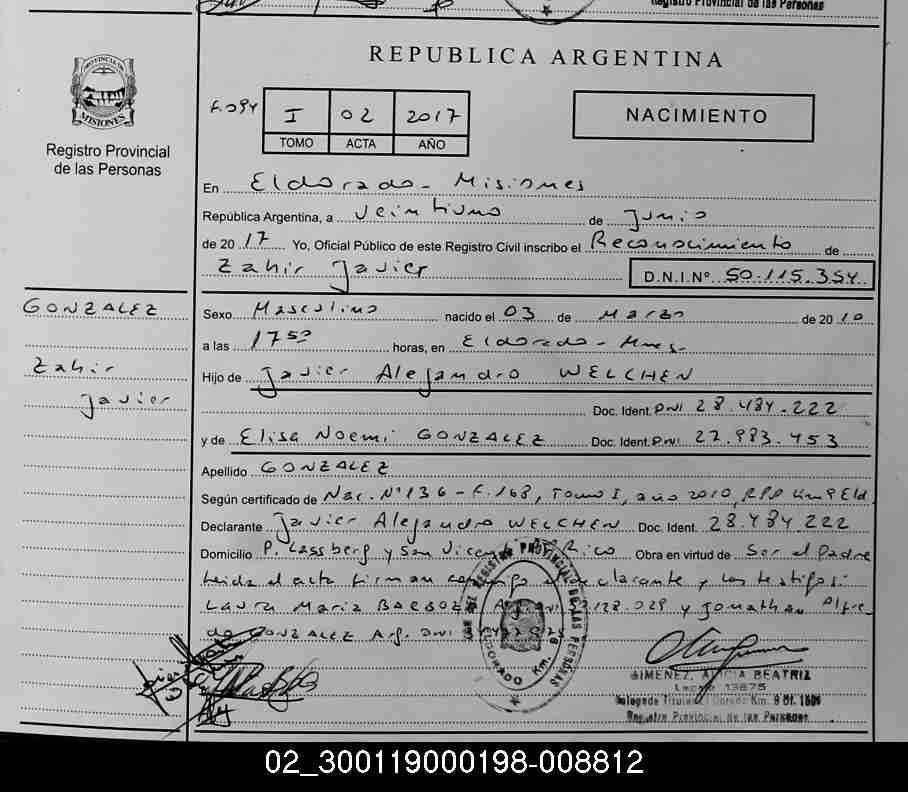 Registro Provincial de las Personas
REPUBLICA ARGENTINA
PROVINCIA DE
MISIONES
Registro Provincial
de las Personas
I 02 2017
TOMO ACTA AÑO
NACIMIENTO
En Eldorado - Misiones
República Argentina, a Veintiuno de Junio
de 2017 Yo, Oficial Público de este Registro Civil inscribo el Reconocimiento de
Zahir Javier D.N.I.Nº 50.115.354
GONZALEZ
Zahir
Javier
Sexo Masculino nacido el 03 de Marzo de 2010
a las 17 50 horas, en Eldorado - Mnes.
Hijo de Javier Alejandro WELCHEN
Doc. Ident. DNI 28.484.222
y de Elisa Noemi GONZALEZ Doc. Ident. DNI 27.983.453
Apellido GONZALEZ
Según certificado de Nac. Nº 136 - F. 168, Tomo I, año 2010, RPP Km 9 Eld.
Declarante Javier Alejandro WELCHEN Doc. Ident. 28.484.222
Domicilio P. Lassberg y San Obra en virtud de Ser el padre
leida el acta firman declarante y los testigos:
Laura Maria y Jonathan
GONZALEZ Arg. DNI
REGISTRO PROVINCIAL DE LAS PERSONAS
ELDORADO Km. 9
GIMENEZ, BEATRIZ
Legajo
Delegada Titular Eldorado Km. 9 Of.
Registro Provincial de las Personas
02_300119000198-008812